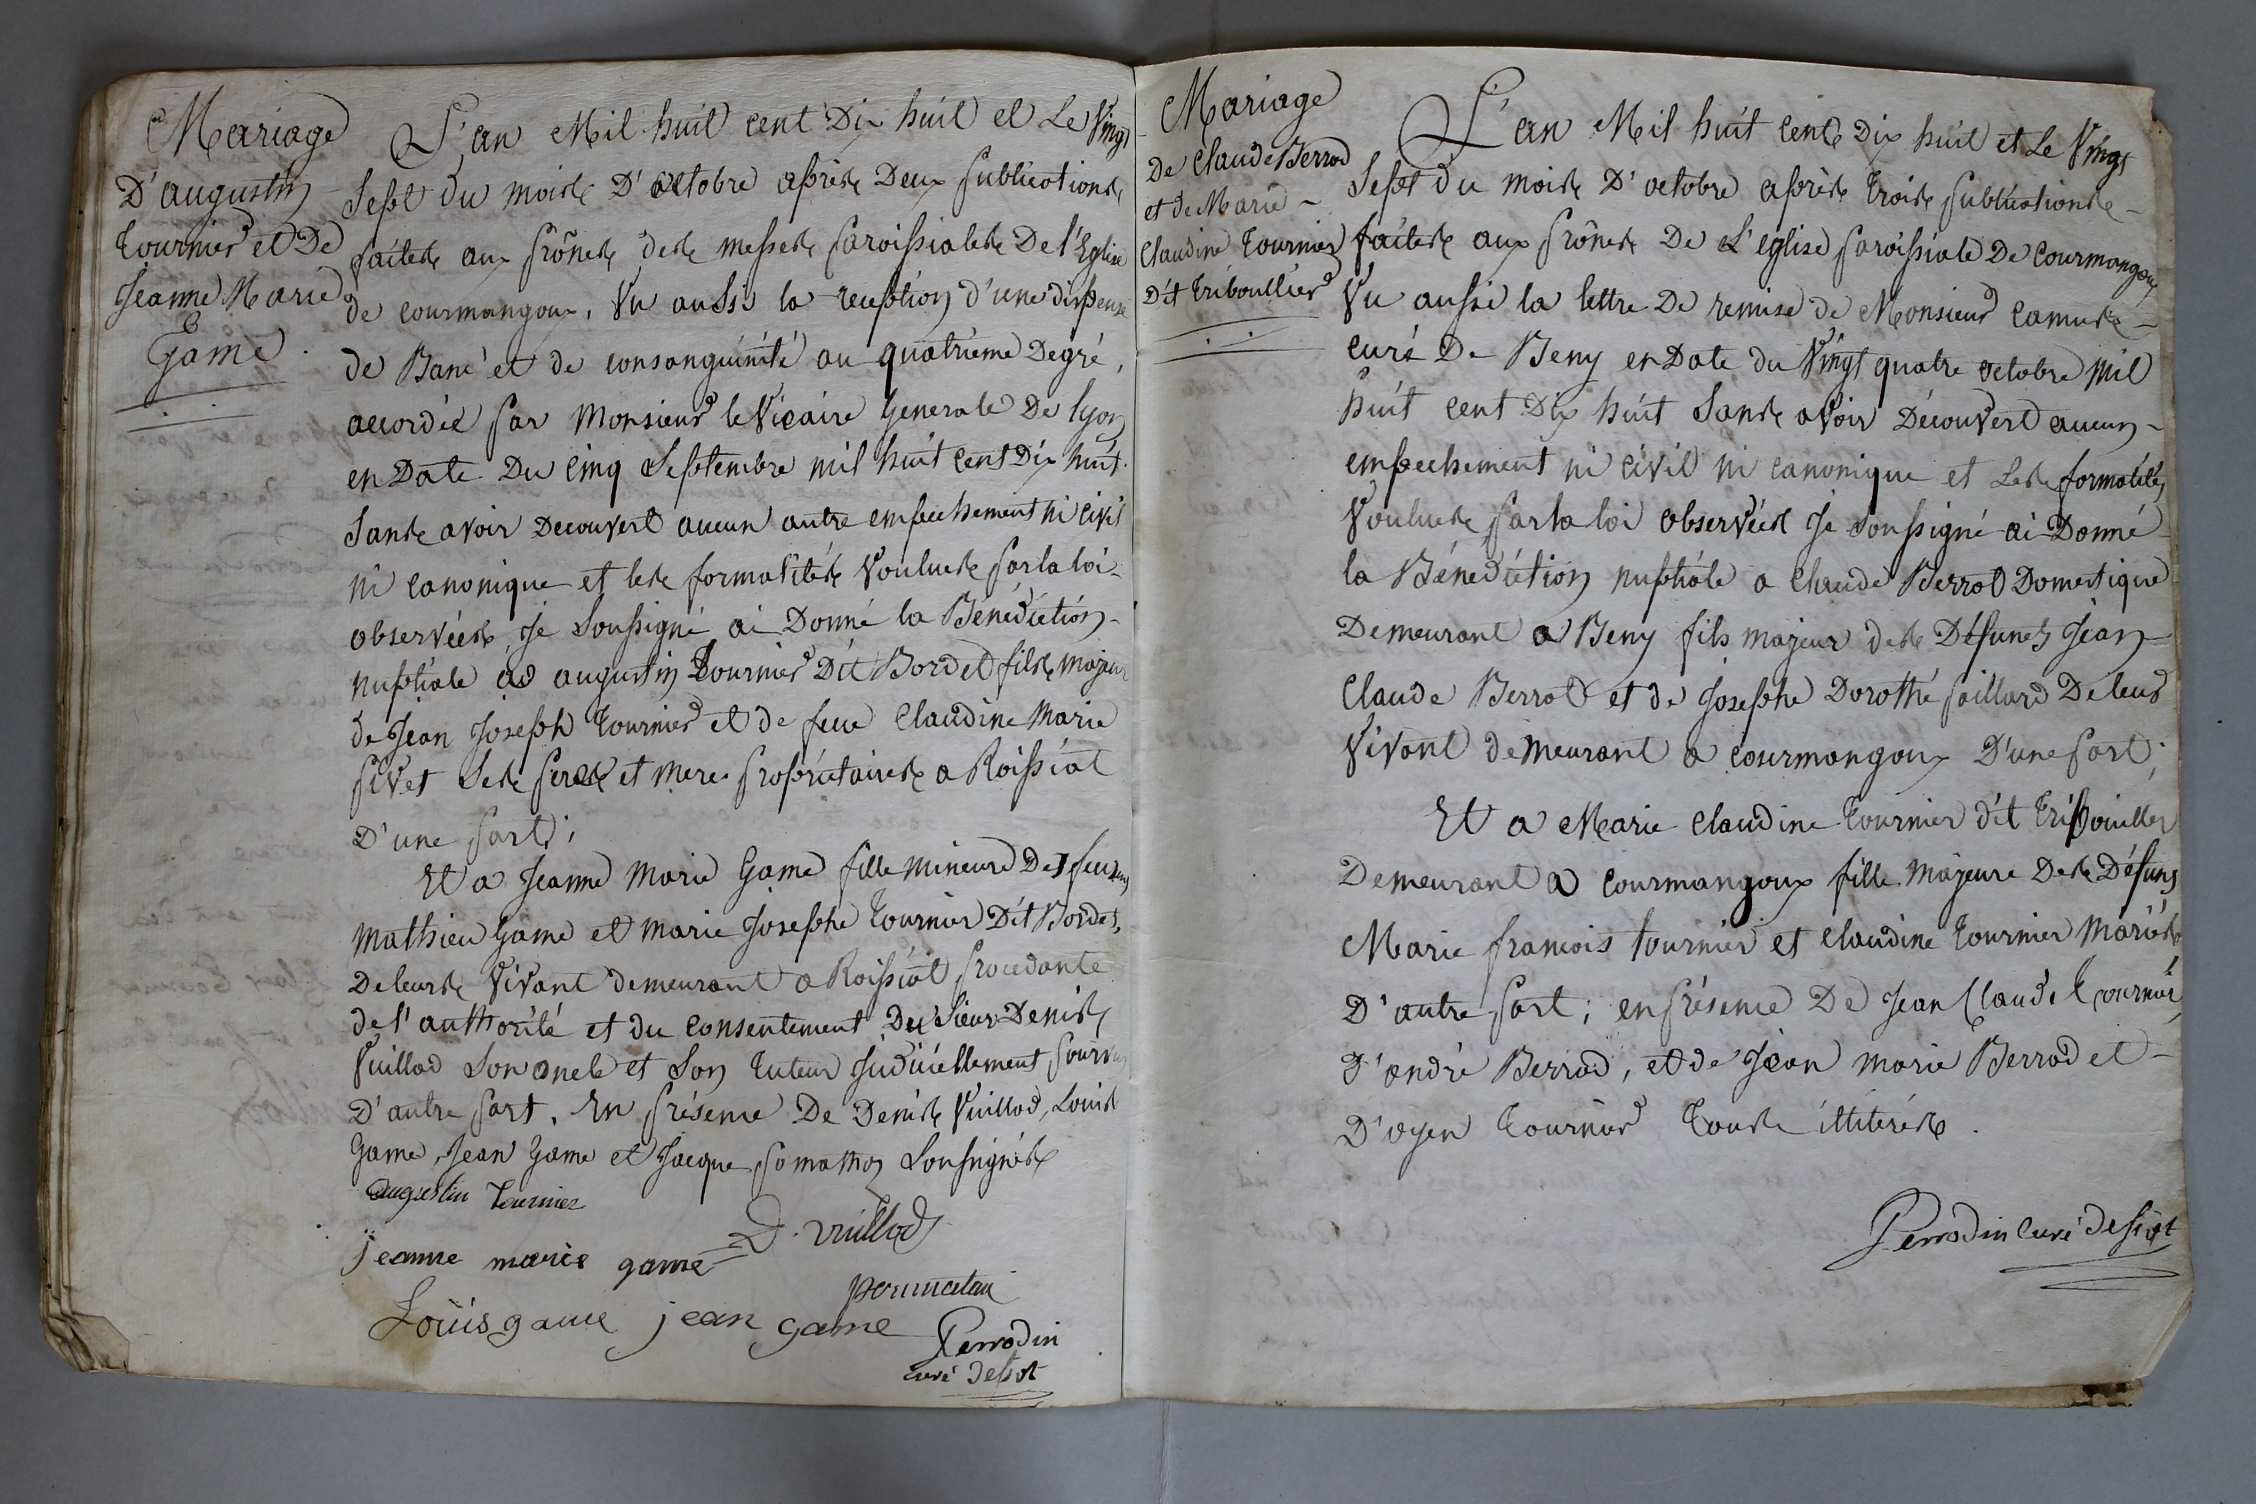 Mariage
D'augustin
tournier et De
Jeanne Marie
Game
L'an Mil huit cent Dix huit et Le Vingt
Sept du mois D'octobre après Deux publications
faites aux prônes des messes paroissiales De l'Eglise
de courmangoux, Vu aussi la reception d'une dispense
de Bans et de consanguinité au quatrieme Degré,
accordée par Monsieur le Vicaire Generale De lyon
en Date Du cinq Septembre mil huit cent Dix huit.
Sans avoir Decouvert aucun autre empechement ni civil
ni canonique et les formalités Voulues par la loi
observées, Je Soussigné ai Donné la Bénédiction
nuptiale ad augustin tournier Dit Bordet fils majeur
de Jean Joseph tournier et de feue Claudine Marie
pivet Ses peres et mere proprietaires a Roissiat
D'une part;
Et a Jeanne Marie Game fille mineure Des feux
Mathieu Game et marie Josephe tournier Dit Bordet,
De leurs Vivant demeurant a Roissiat procedante
de l'authorité et du consentement Du Sieur Denis
Vuillod Son oncle et Son tuteur Judiciellement pourvu
D'autre part. En présence De Denis Vuillod, Louis
Game, Jean Game et Jacque pomathon Soussignés
augustin tournier
D. Vuillod
jeanne marie game
Louis game jean game
Perrodin
curé depot
Mariage
De Claude Berrod
et de Marie
Claudine tournier
Dit triboullier
L'an Mil huit cent Dix huit et Le Vingt
Sept du mois D'octobre après trois publications
faites aux prônes De L'eglise paroissiale De courmangoux
Vu aussi la lettre De remise de Monsieur camus
curé De Beny en Date du Vingt quatre octobre Mil
huit cent Dix huit Sans avoir Découvert aucun
empechement ni civil ni canonique et Les formalités
Voulues par la loi observées Je soussigné ai Donné
la Bénédiction nuptiale a Claude Berrod Domestique
Demeurant a Beny fils majeur des Défunts Jean
Claude Berrod et de Josephe Dorothé paillard De leur
Vivant demeurant a courmangoux D'une part;
Et a Marie Claudine tournier dit tribouiller
Demeurant a courmangoux fille majeure Des Défuns
Marie francois tournier et Claudine tournier Mariés
D'autre part; en présence De Jean Claude tournier,
D'andré Berrod, et de Jean marie Berrod et
D'oyen tournier tous illitérés.
Perrodin curé depot